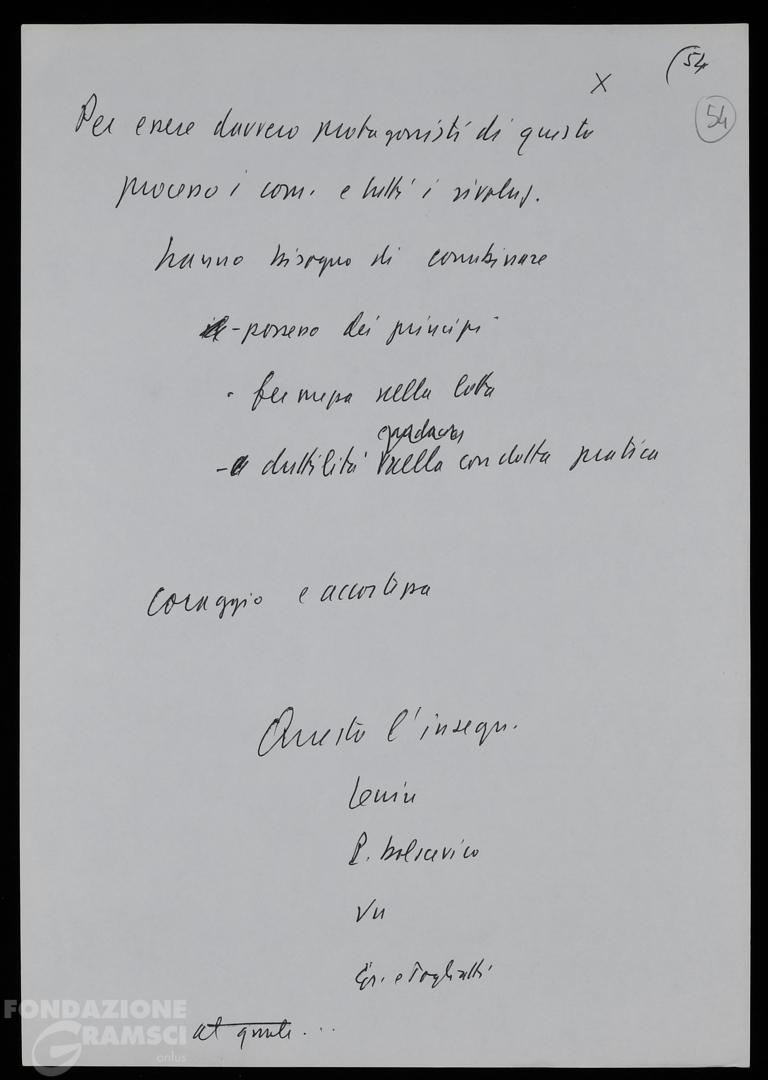 (54
X
54
Per essere davvero protagonisti di questo
processo i com. e tutti i rivoluz.
hanno bisogno di combinare
- possesso dei principi
- fermezza nella lotta
- duttilità nella condotta pratica
coraggio e accortezza
Questo l'insegn.
Lenin
P. bolscevico
Vn
Gr. e Togliatti
at quale...
FONDAZIONE
GRAMSCI
onlus